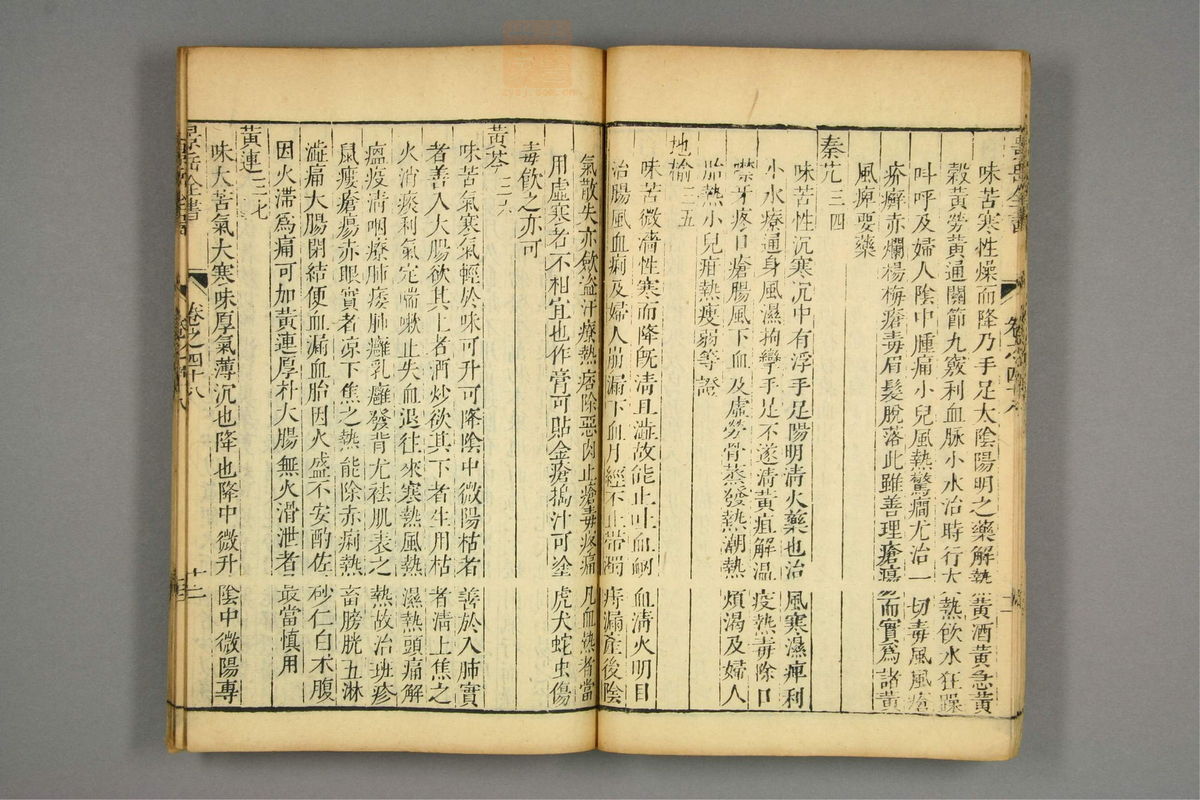 味苦寒性燥而降乃手足太陰陽明之藥解熱黃酒黃急黃
穀黃勞黃通關節九竅利血脉小水治時行大熱飲水狂躁
叫呼及婦人陰中腫痛小兒風熱驚癇尤治一切毒風風瘡
疥癬赤爛楊梅瘡毒眉髮脫落此雖善理瘡瘍而實為諸黃
風痺要藥
秦艽三四
味苦性沉寒沉中有浮手足陽明清火藥也治風寒濕痺利
小水療通身風濕拘攣手足不遂清黃疸解温疫熱毒除口
噤牙疼口瘡腸風下血及虛勞骨蒸發熱潮熱煩渴及婦人
胎熱小兒疳熱瘦弱等證
地榆三五
味苦微濇性寒而降既清且澁故能止吐血衂血清火明目
治腸風血痢及婦人崩漏下血月經不止帶濁痔漏產後陰
氣散失亦歛盗汗療熱痞除惡肉止瘡毒疼痛凡血熱者當
用虛寒者不相宜也作膏可貼金瘡搗汁可塗虎犬蛇虫傷
毒飲之亦可
黃芩三六
味苦氣寒氣輕於味可升可降陰中微陽枯者善於入肺實
者善入大腸欲其上者酒炒欲其下者生用枯者清上焦之
火消痰利氣定喘嗽止失血退往來寒熱風熱濕熱頭痛解
瘟疫清咽療肺痿肺癰乳癰發背尤祛肌表之熱故治斑疹
鼠瘻瘡瘍赤眼實者凉下焦之熱能除赤痢熱畜膀胱五淋
澁痛大腸閉結便血漏血胎因火盛不安酌佐砂仁白朮腹
因火滯為痛可加黃連厚朴大腸無火滑泄者最當慎用
黃連三七
味大苦氣大寒味厚氣薄沉也降也降中微升陰中微陽專
景岳全書
卷之四十八